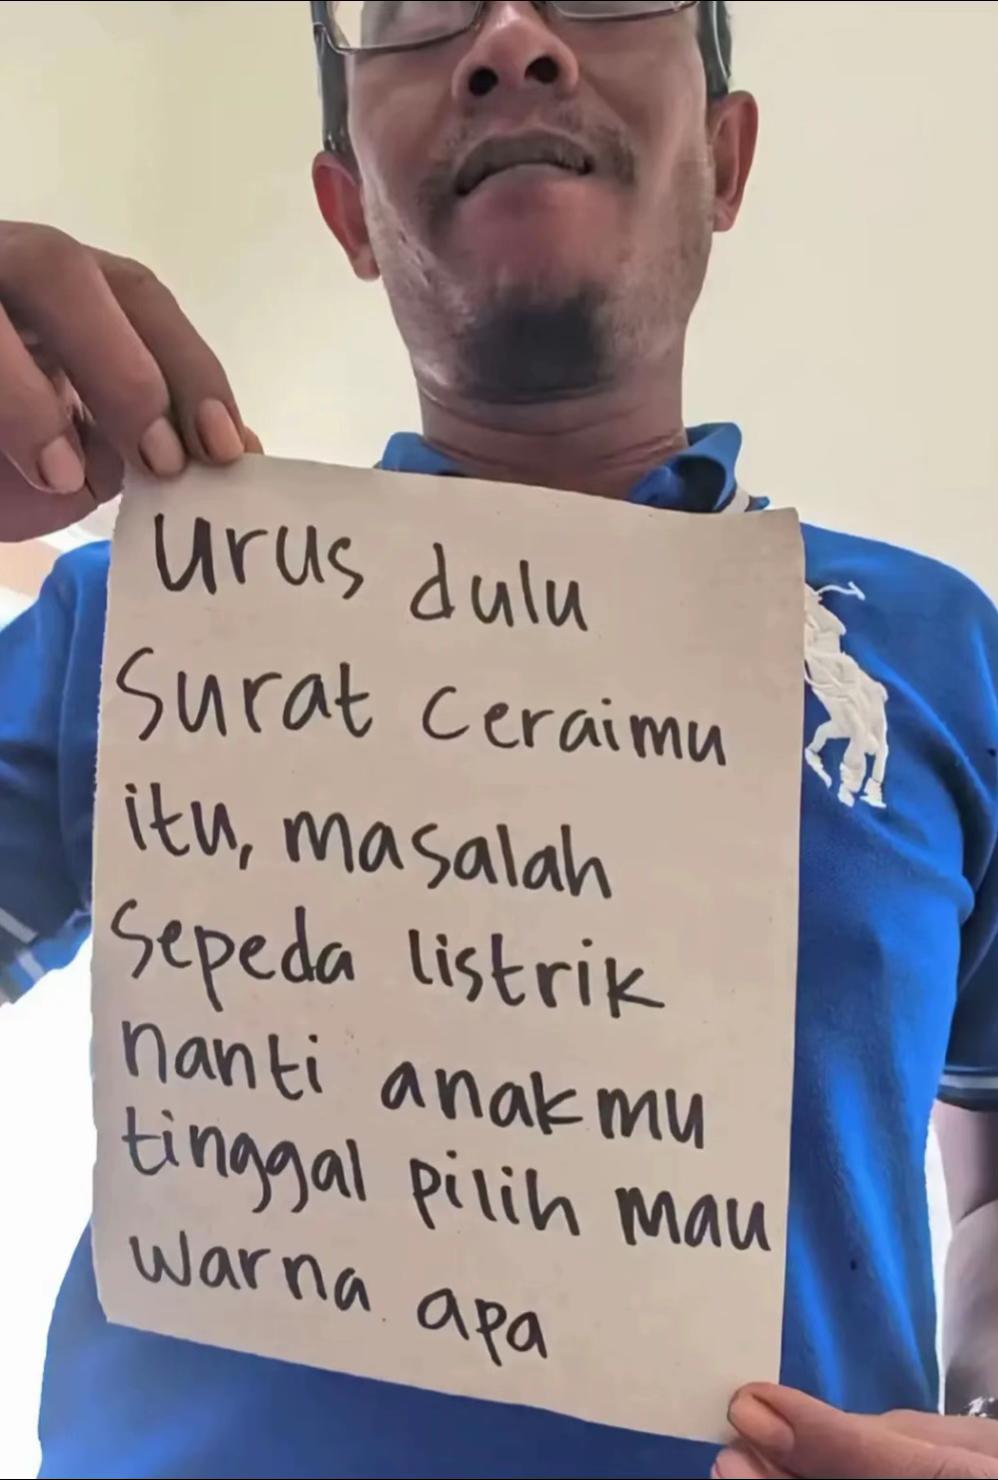 urus dulu
Surat ceraimu
itu, masalah
Sepeda listrik
nanti anakmu
tinggal pilih mau
warna apa